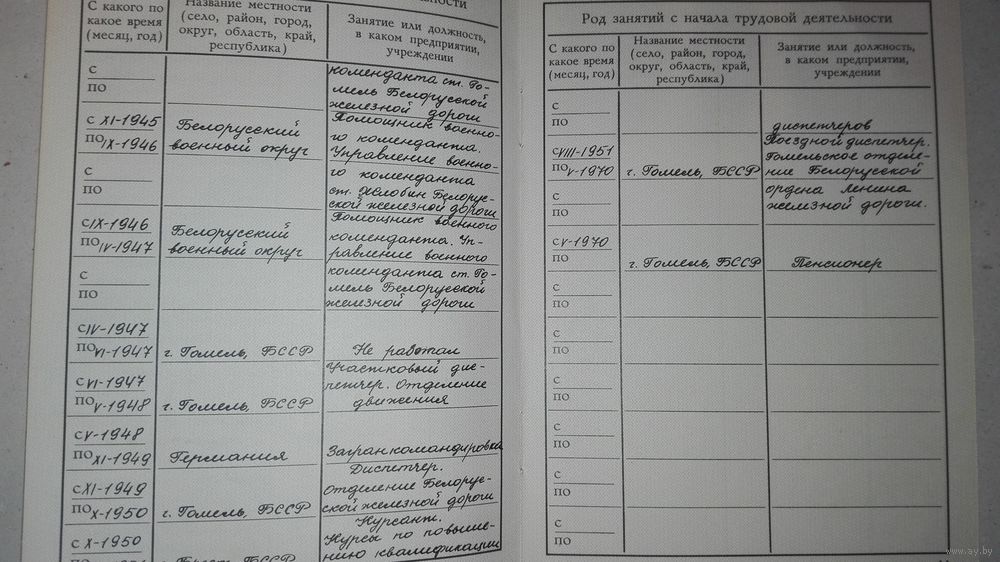 льности
С какого по
какое время
(месяц, год)
Название местности
(село, район, город,
округ, область, край,
республика)
Занятие или должность,
в каком предприятии,
учреждении
с
по
коменданта ст. Го-
мель Белорусской
железной дороги
с XI-1945
по IX-1946
Белорусский
военный округ
Помощник военно-
го коменданта.
Управление военно-
го коменданта
ст. Жлобин Белорус-
ской железной дороги
с
по
с IX-1946
по IV-1947
Белорусский
военный округ
Помощник военного
коменданта. Уп-
равление военного
коменданта ст. Го-
мель Белорусской
железной дороги
с
по
с IV-1947
по VI-1947
г. Гомель, БССР
Не работал
с VI-1947
по V-1948
г. Гомель, БССР
Участковый дис-
петчер. Отделение
движения
с V-1948
по XI-1949
Германия
Загранкомандировка
с XI-1949
по X-1950
г. Гомель, БССР
Диспетчер.
Отделение Белорус-
ской железной дороги
с X-1950
по
г. Брест, БССР
Курсант.
Курсы по повыше-
нию квалификации
Род занятий с начала трудовой деятельности
С какого по
какое время
(месяц, год)
Название местности
(село, район, город,
округ, область, край,
республика)
Занятие или должность,
в каком предприятии,
учреждении
с
по
диспетчеров
с VIII-1951
по V-1970
г. Гомель, БССР
Поездной диспетчер.
Гомельское отделе-
ние Белорусской
ордена Ленина
железной дороги.
с
по
с V-1970
по
г. Гомель, БССР
Пенсионер
с
по
с
по
с
по
с
по
с
по
с
по
www.ay.by